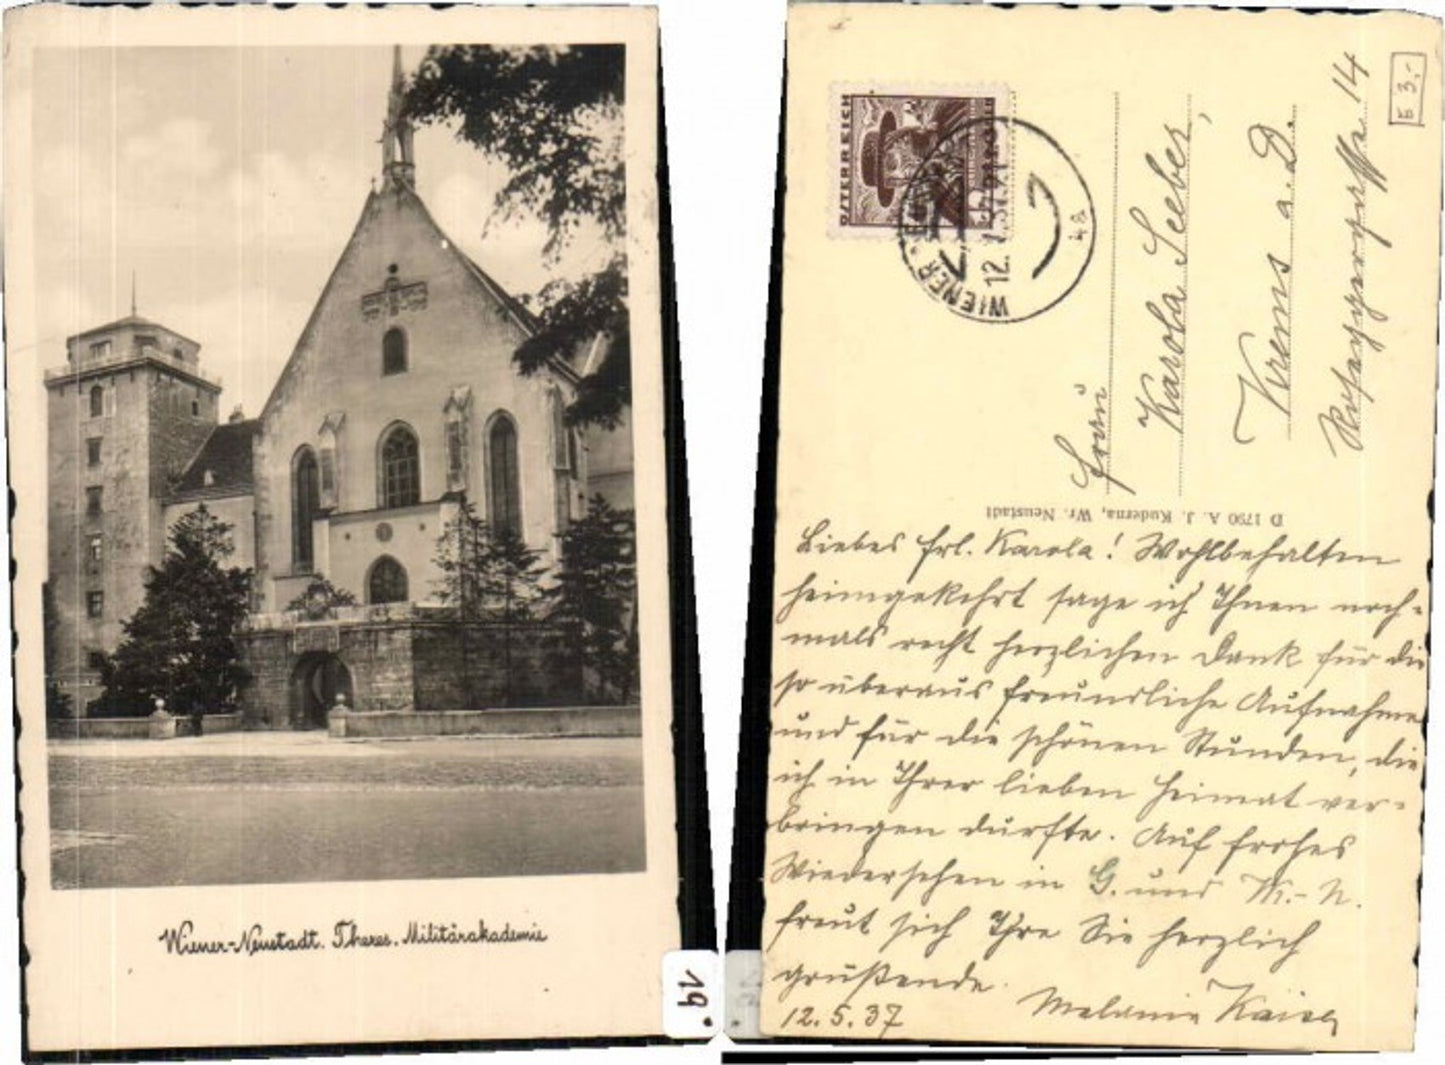 Wiener-Neustadt. Theres. Militärakademie
19
ÖSTERREICH
WIENER
12.
4a
Frau
Karola Seeber,
Krems a. D.
Roseggergasse 14
3,-
D 1790 A. J. Kuderna, Wr. Neustadt
Liebes Frl. Karola! Wohlbehalten
heimgekehrt sage ich Ihnen noch-
mals recht herzlichen Dank für die
so überaus freundliche Aufnahme
und für die schönen Stunden, die
ich in Ihrer lieben Heimat ver-
bringen durfte. Auf frohes
Wiedersehen in G. und W.-N.
freut sich Ihre Sie herzlich
grüßende
12.5.37 Melanie